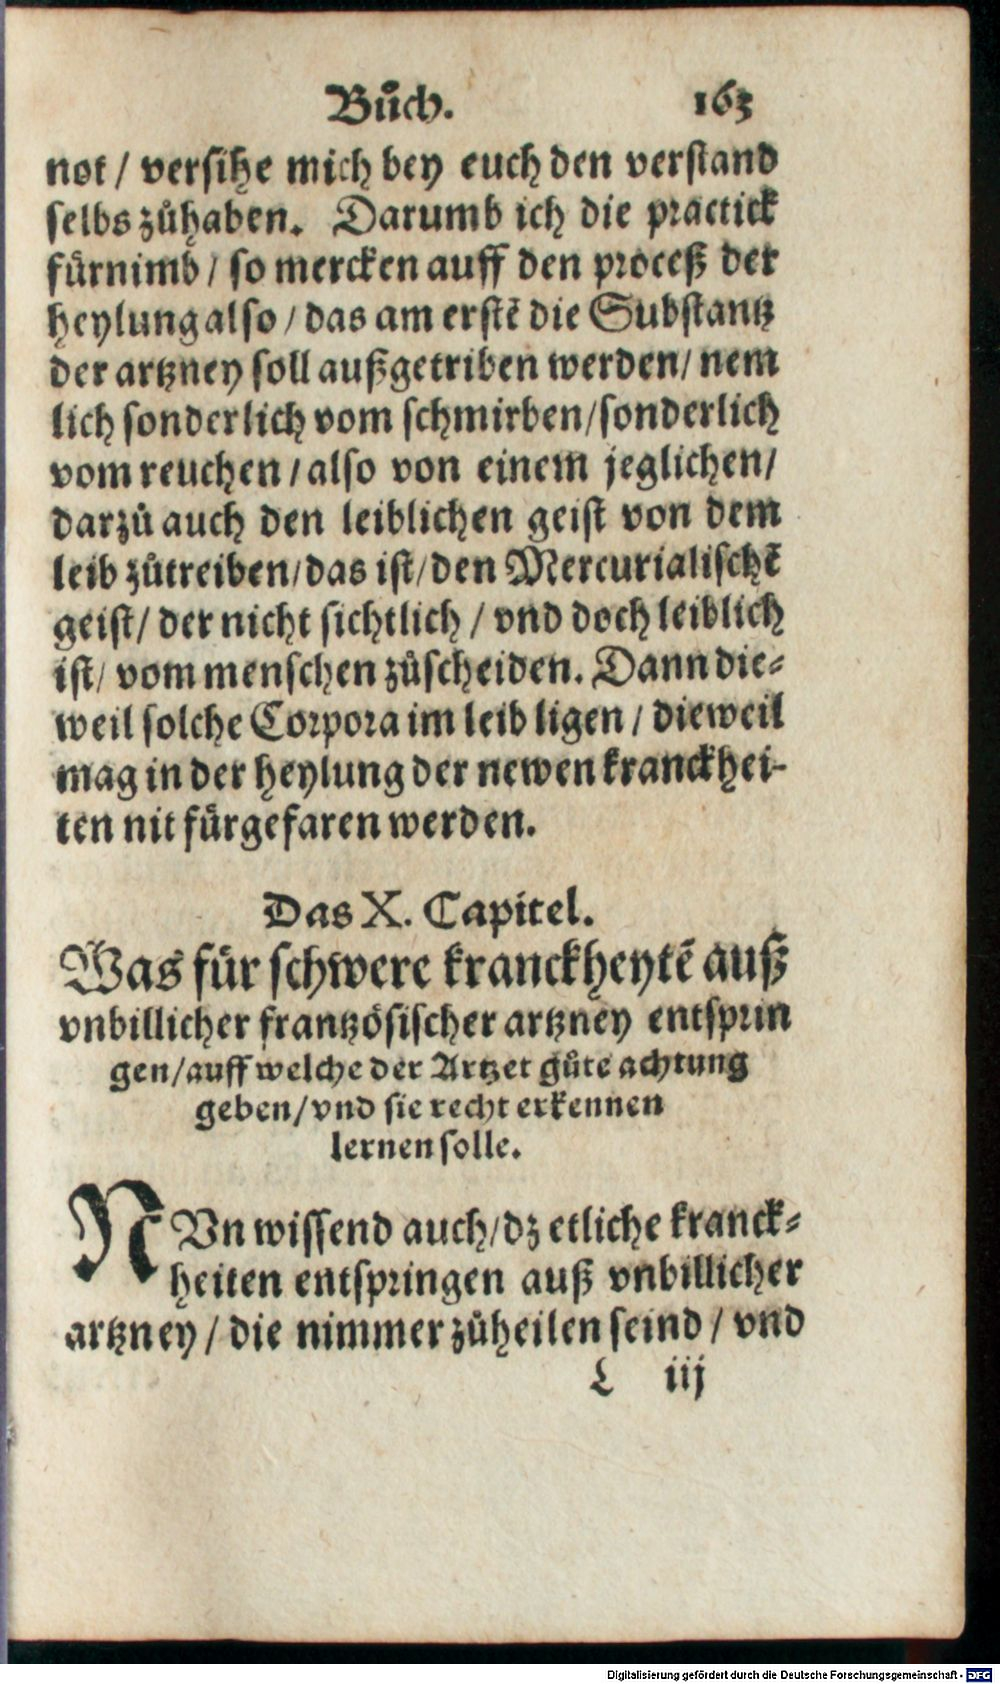 Bůch. 163
not / versihe mich bey euch den verstand
selbs zůhaben. Darumb ich die practick
fürnimb / so mercken auff den proceß der
heylung also / das am erstẽ die Substantz
der artzney soll außgetriben werden / nem
lich sonderlich vom schmirben / sonderlich
vom reuchen / also von einem jeglichen /
darzů auch den leiblichen geist von dem
leib zůtreiben / das ist / den Mercurialischẽ
geist / der nicht sichtlich / vnd doch leiblich
ist / vom menschen zůscheiden. Dann die⸗
weil solche Corpora im leib ligen / dieweil
mag in der heylung der newen kranckhei-
ten nit fürgefaren werden.
Das X. Capitel.
Was für schwere kranckheytẽ auß
vnbillicher frantzösischer artzney entsprin
gen / auff welche der Artzet gůte achtung
geben / vnd sie recht erkennen
lernen solle.
NVn wissend auch / dz etliche kranck⸗
heiten entspringen auß vnbillicher
artzney / die nimmer zůheilen seind / vnd
L iij
Digitalisierung gefördert durch die Deutsche Forschungsgemeinschaft - DFG